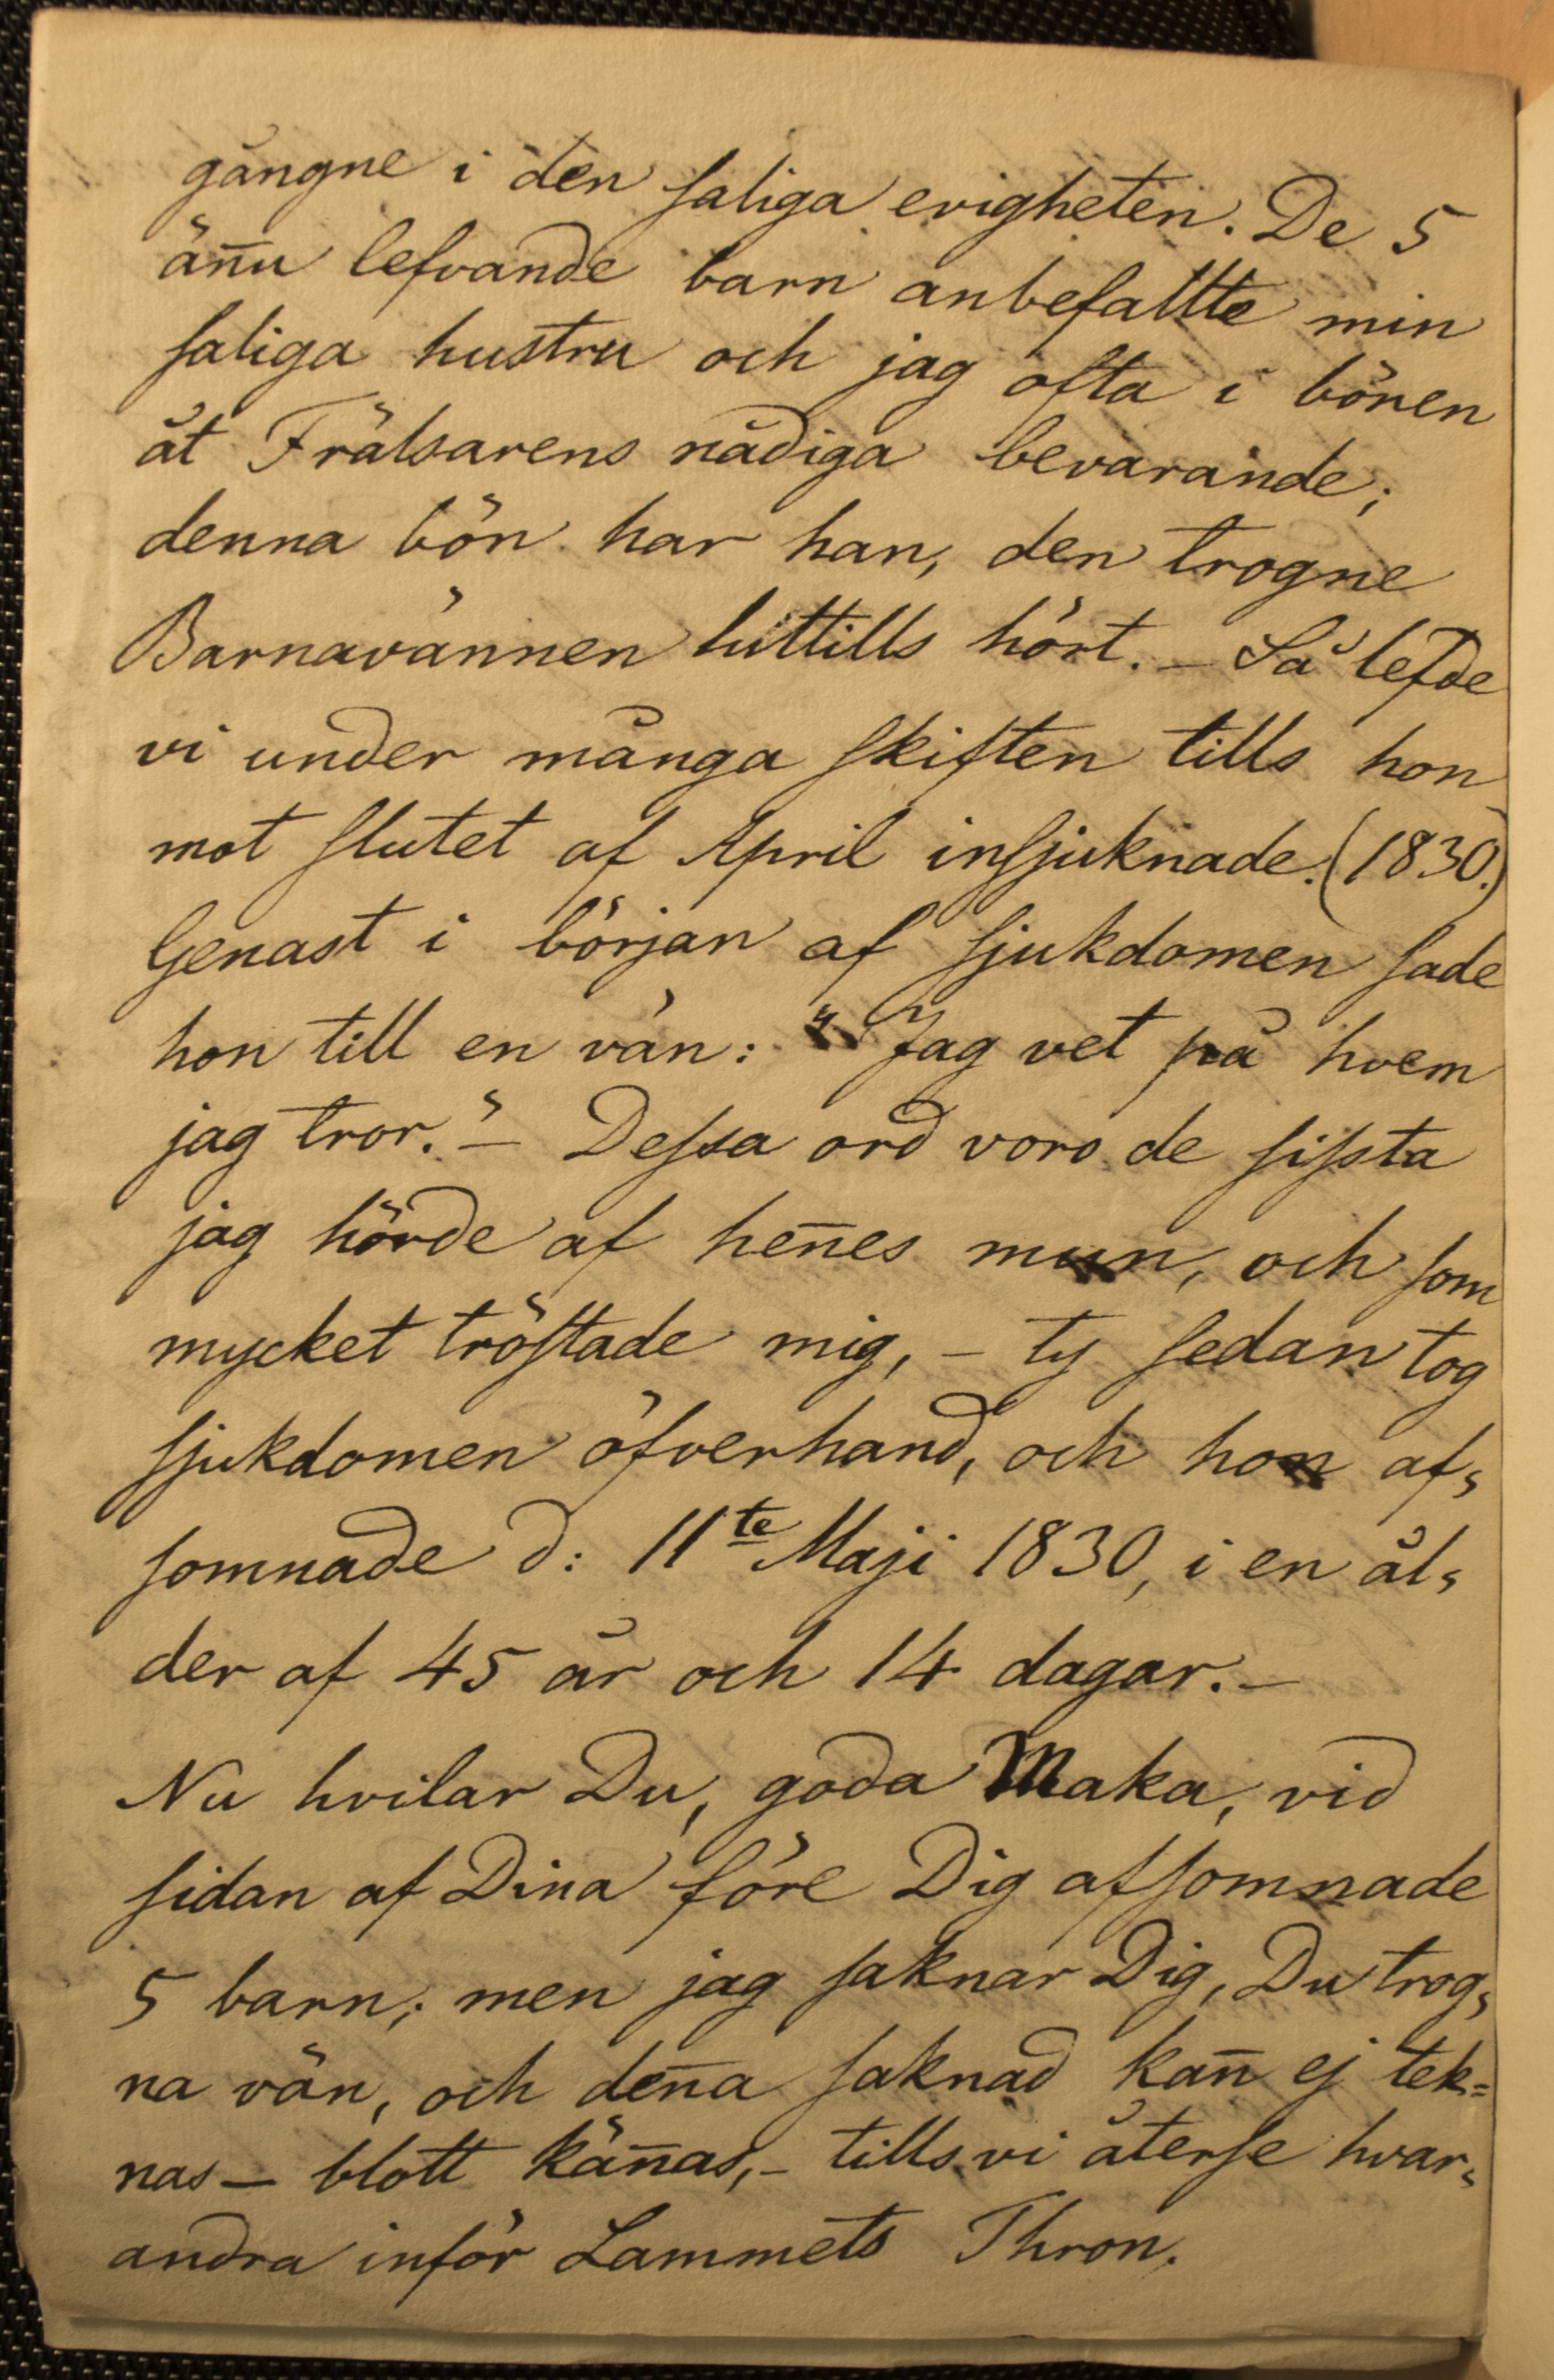 gångne i den saliga evigheten. De 5
äñu lefvande barn anbefallte min
saliga hustru och jag ofta i bönen
åt Frälsarens nådiga bevarande;
denna bön har han, den trogne
Barnavännen hittills hört. – Så lefde
vi under många skiften tills hon
mot slutet af April insjuknade. (1830.)
Genast i början af sjukdomen sade
hon till en vän: "Jag vet på hvem
jag tror." – Dessa ord voro de sissta
jag hörde af heñes mun, och som
mycket tröstade mig, – ty sedan tog
sjukdomen öfverhand, och hon af=
somnade d: 11te Maji 1830, i en ål=
der af 45 år och 14 dagar. –
Nu hvilar Du, goda Maka, vid
sidan af Dina före Dig afsomnade
5 barn; men jag saknar Dig, Du trog=
na vän, och deña saknad kañ ej tek=
nas – blott käñas, – tills vi återse hvar=
andra inför Lammets Thron.